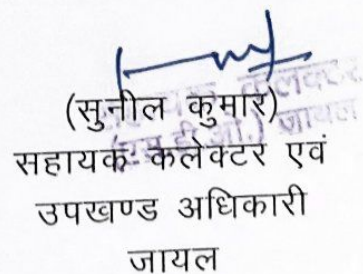 (सुनील कुमार)
सहायक कलेक्टर एवं
उपखण्ड अधिकारी
जायल